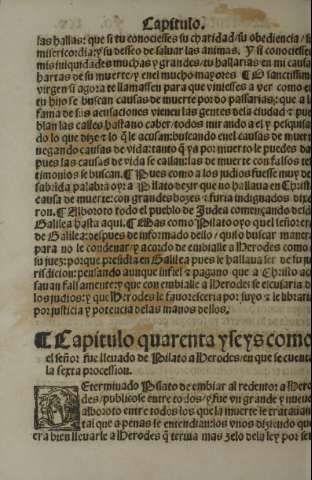 Capítulo.
las hallas: que si tu conociesses su charidad/su obediencia/su
misericordia: y su desseo de saluar las animas. Y si conociesses
mis iniquidades muchas y grandes/tu hallarias en mi causas
hartas de su muerte/y en el mucho mayores ¶ O sanctissima
virgen si agora te llamassen para que viniesses a ver como en
tu hijo se buscan causas de muerte por do passarias: que a la
fama de sus acusaciones vienen las gentes de la ciudad: y pue
blan las calles hasta no caber. todos mirando a el y pesquisan
do lo que dize y lo q̃ le acusan: buscando en el causas de muerte y
negando causas de vida: tanto q̃ ya por muerto le puedes dar
pues las causas de vida se callan: las de muerte con falsos tes
timonios se buscan. ¶ Pues como a los judios fuesse muy de
sabrida palabra oyr a Pilato dezir que no hallaua en Christo
causa de muerte: con grandes bozes y furia indignados dixe
ron. ¶ Alboroto todo el pueblo de Judea començando desde
Galilea hasta aqui. ¶ Mas como Pilato oyo quel señor era
de Galilea: despues de informado dello/quiso buscar manera
para no le condenar: y acordo de embialle a Herodes como a
su juez: porque presidia en Galilea pues le hallaua ser de su ju
risdicion: pensando aunque infiel y pagano que a Christo acu
sauan falsamente: y que con embialle a Herodes se escusaria de
los judios: y que Herodes le fauoresceria por suyo y le libraria
por justicia y potencia de las manos dellos.
¶ Capítulo quarenta y seys como
el señor fue lleuado de Pilato a Herodes/en que se cuenta
la sexta procession.
DEterminado Pilato de embiar al redentor a Hero
des/publicose entre todos/y fue vn grande y nueuo
alboroto entre todos los que la muerte le tratauan
tal que a penas se entendian: los vnos diziendo que
era bien lleuarle a Herodes q̃ ternia mas zelo dela ley por ser